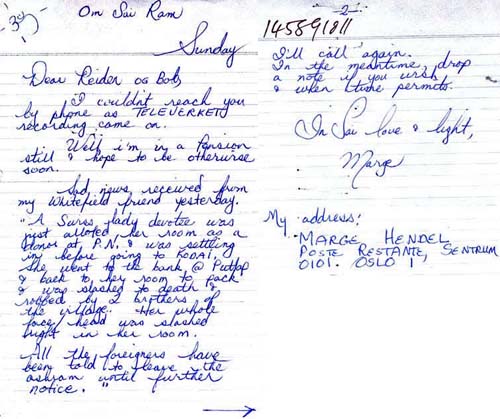 Om Sai Ram
Sunday
Dear Reidun og Bob,
I couldn't reach you
by phone as TELEVERKET
recording came on.
Well i'm in a Pension
still & hope to be otherwise
soon.
Sad news, received from
my Whitefield friend yesterday.
"A Swiss lady devotee was
just alloted her room as a
donor at P.N. & was settling
in before going to KODAI.
She went to the bank @ Puttap
& back to her room to pack
& was slashed to death &
robbed by 2 brothers of
the village. Her whole
face/head was slashed
right in her room.
All the foreigners have
been told to leave the
ashram until further
notice."
- 2 -
145891811
I'll call again.
In the meantime, drop
a note if you wish
& when time permits.
In Sai love & light,
Marge
My address:
MARGE HENDEL
POSTE RESTANTE, SENTRUM
0101. OSLO 1